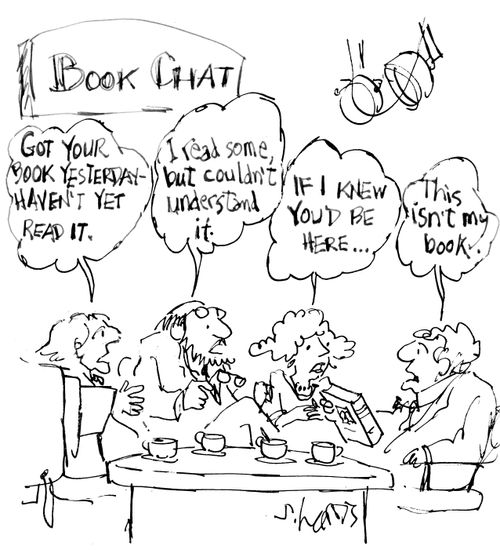 BOOK CHAT
GOT YOUR
BOOK YESTERDAY-
HAVEN'T YET
READ IT.
I read some,
but couldn't
understand
it.
IF I KNEW
YOU'D BE
HERE...
This
isn't my
book.
S. Harris